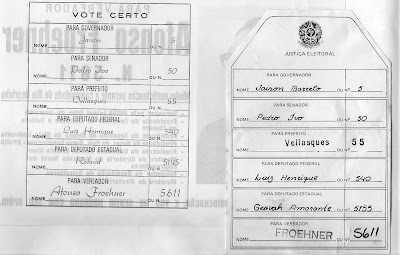 VOTE CERTO
PARA GOVERNADOR
NOME Jaison OU N. 5
PARA SENADOR
NOME Pedro Ivo OU N. 50
PARA PREFEITO
NOME Vellasques OU N. 55
PARA DEPUTADO FEDERAL
NOME Luiz Henrique OU N. 540
PARA DEPUTADO ESTADUAL
NOME OU N. 5145
PARA VEREADOR
NOME Afonso Froehner OU N. 5611
JUSTIÇA ELEITORAL
PARA GOVERNADOR
NOME Jaison Barreto OU Nº 5
PARA SENADOR
NOME Pedro Ivo OU Nº 50
PARA PREFEITO
NOME Vellasques OU Nº 55
PARA DEPUTADO FEDERAL
NOME Luiz Henrique OU Nº 540
PARA DEPUTADO ESTADUAL
NOME Geovah Amarante OU Nº 5155
PARA VEREADOR
NOME FROEHNER OU Nº 5611